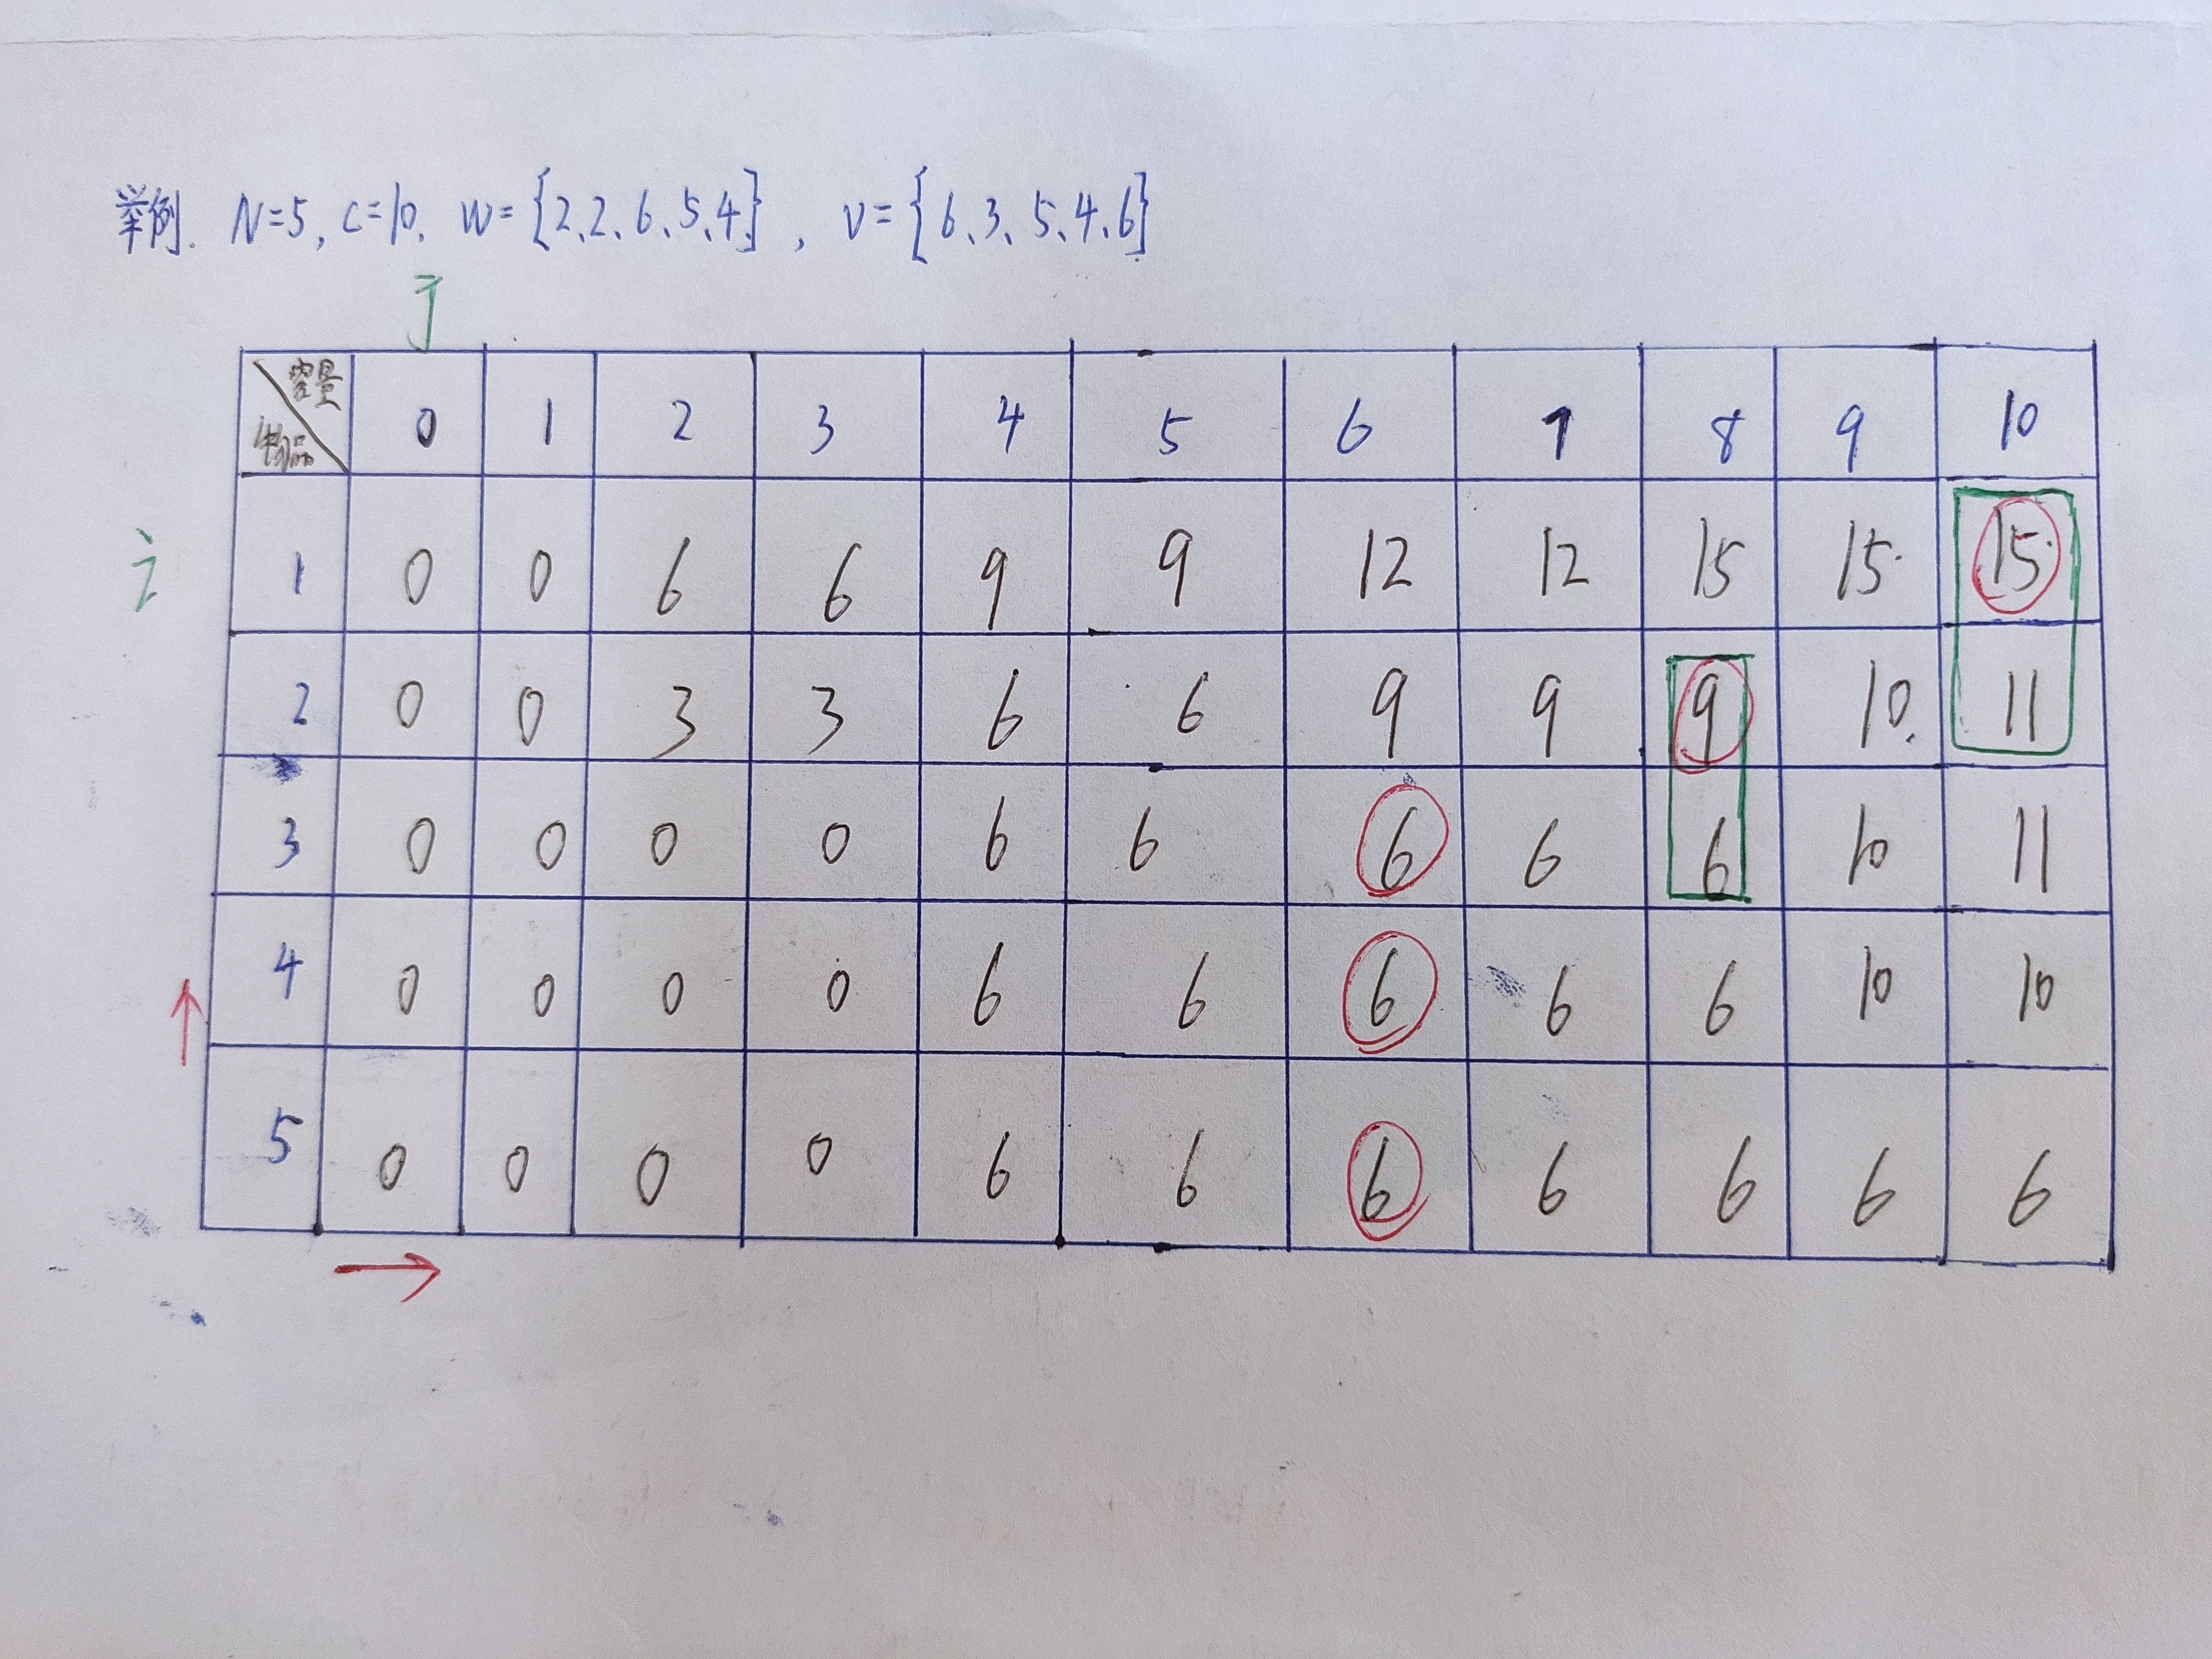 举例. N=5, C=10, W={2、2、6、5、4}, V={6、3、5、4、6}
j
容量 物品 0 1 2 3 4 5 6 7 8 9 10
i 1 0 0 6 6 9 9 12 12 15 15 15
2 0 0 3 3 6 6 9 9 9 10 11
3 0 0 0 0 6 6 6 6 6 10 11
4 0 0 0 0 6 6 6 6 6 10 10
5 0 0 0 0 6 6 6 6 6 6 6